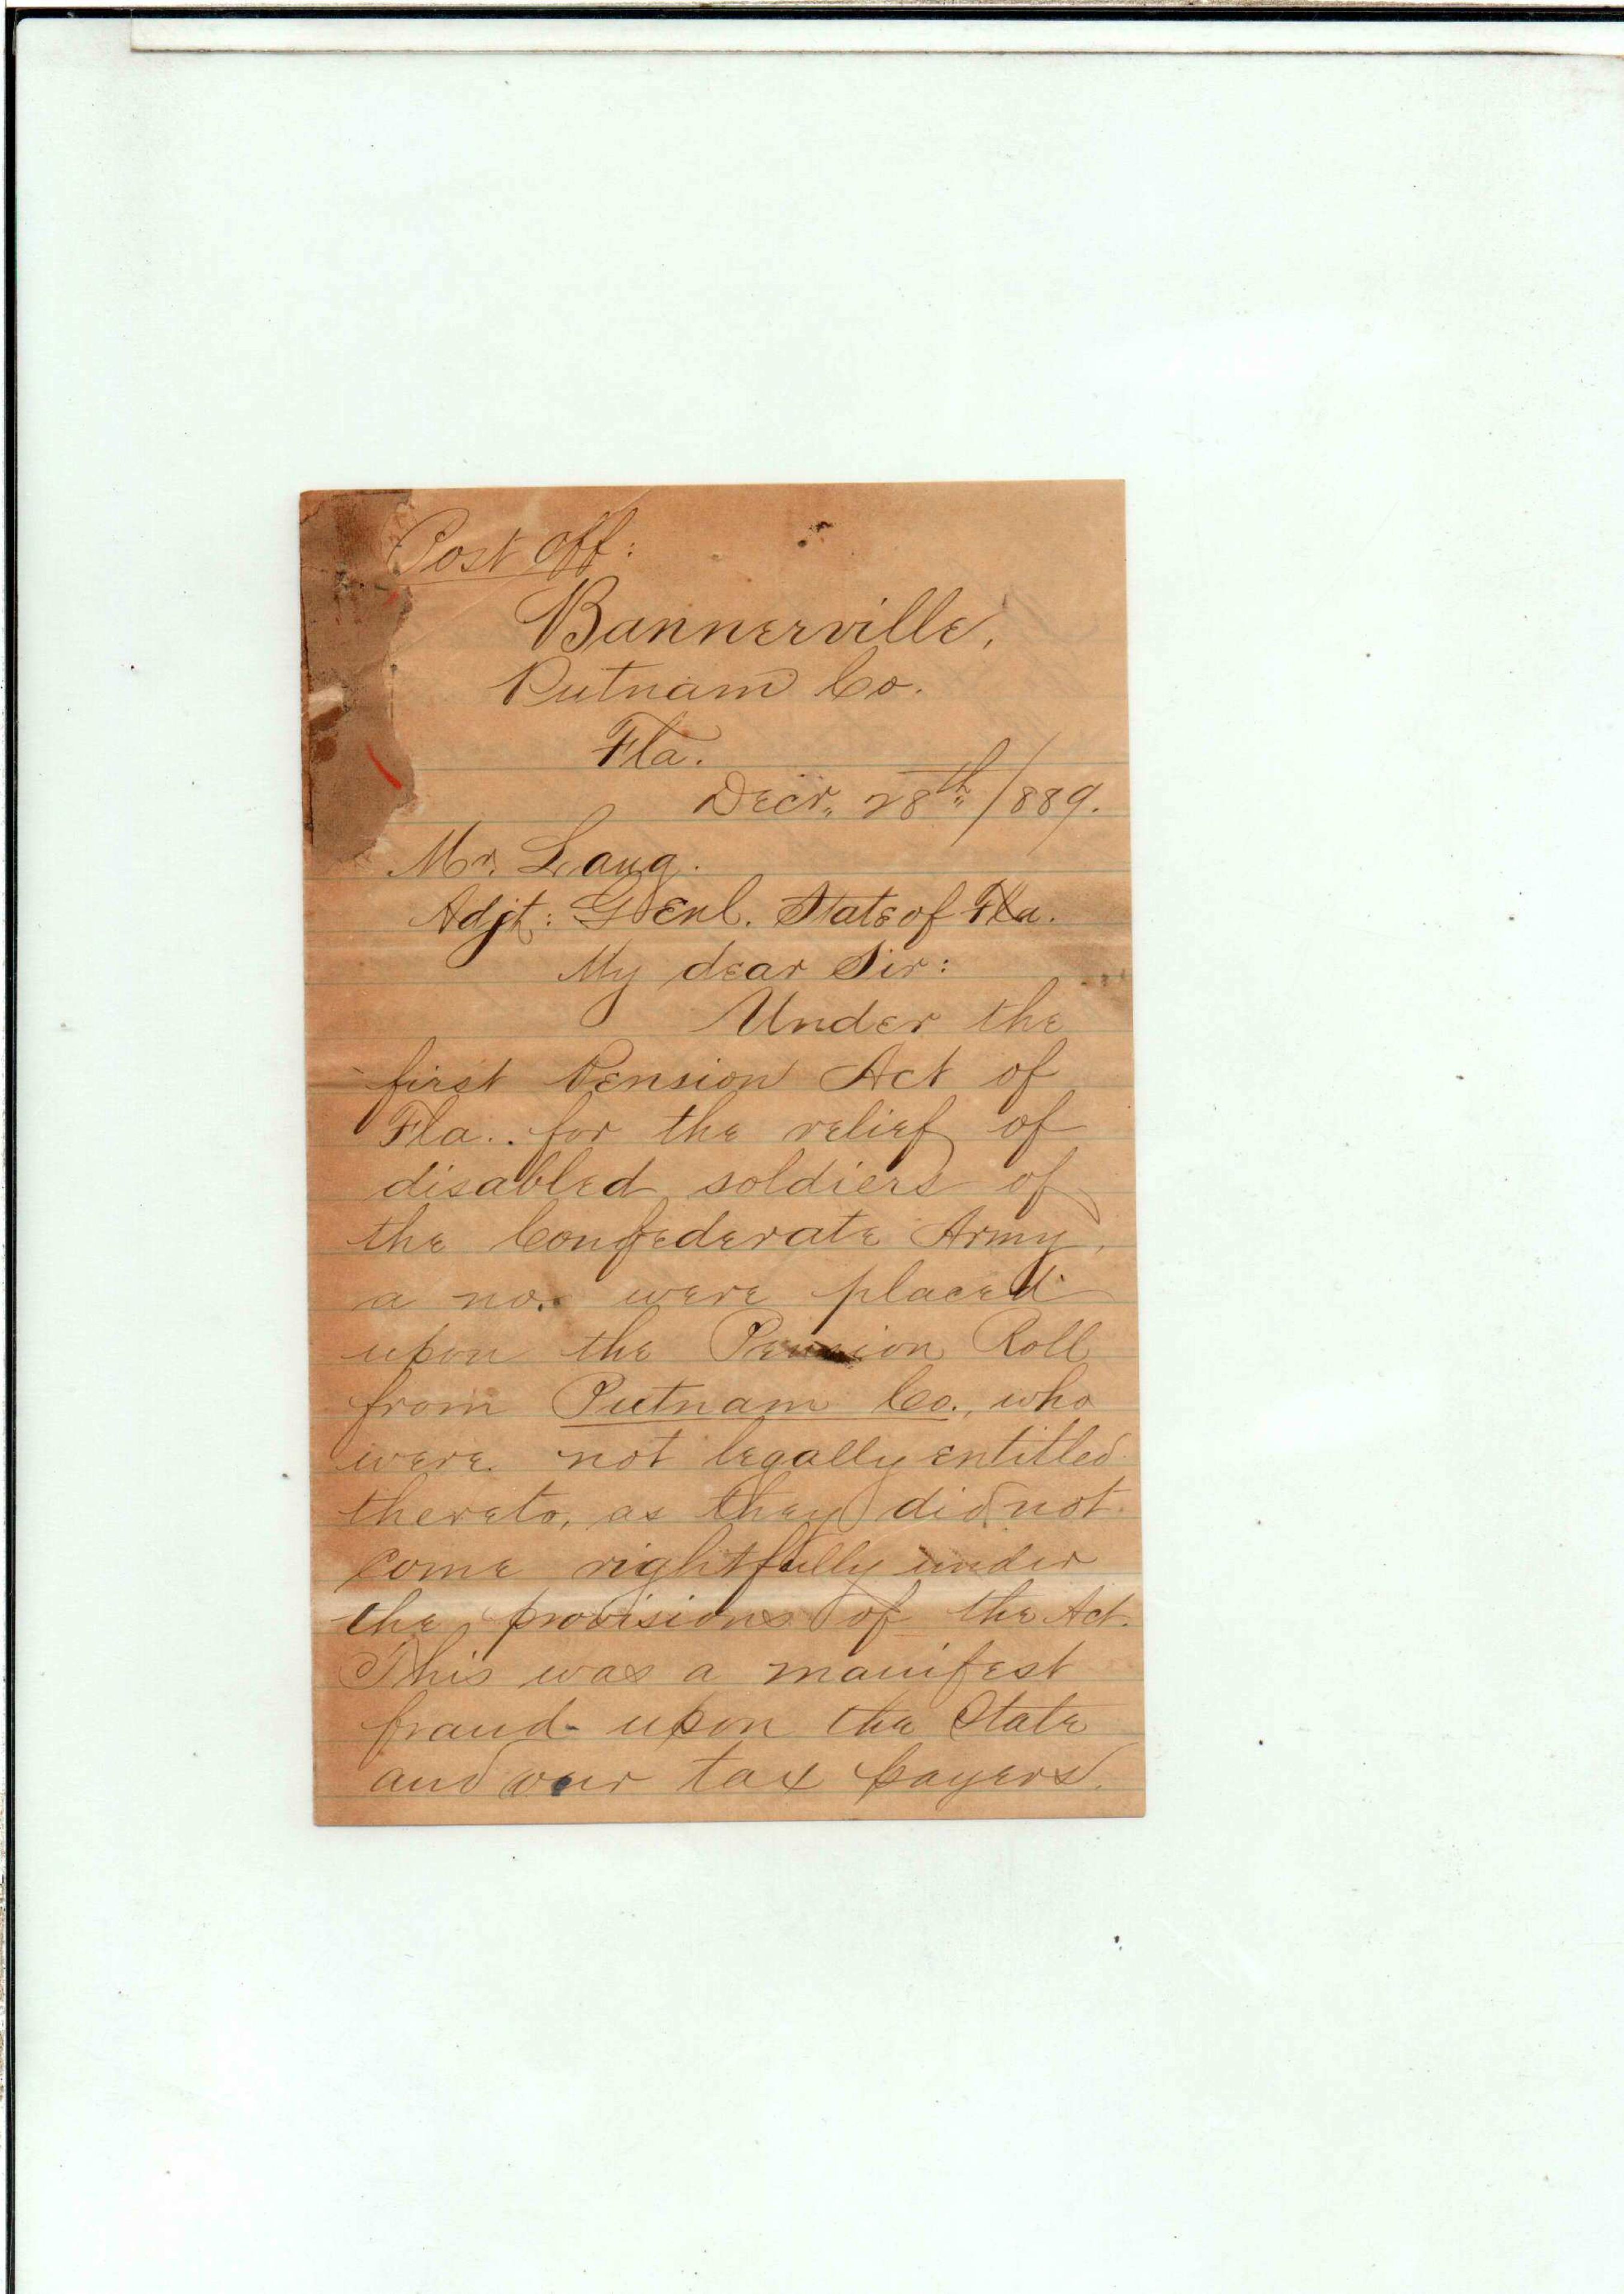 Post Off:
Bannerville,
Putnam Co.
Fla.
Decr. 28th /889.
Mr. Lang.
Adjt: Genl. State of Fla.
My dear Sir:
Under the
first Pension Act of
Fla.. for the relief of
disabled soldiers of
the Confederate Army,
a no. were placed
upon the Pension Roll
from Putnam Co., who
were not legally entitled
thereto, as they did not
come rightfully under
the provisions of the Act.
This was a manifest
fraud upon the State
and our tax payers.